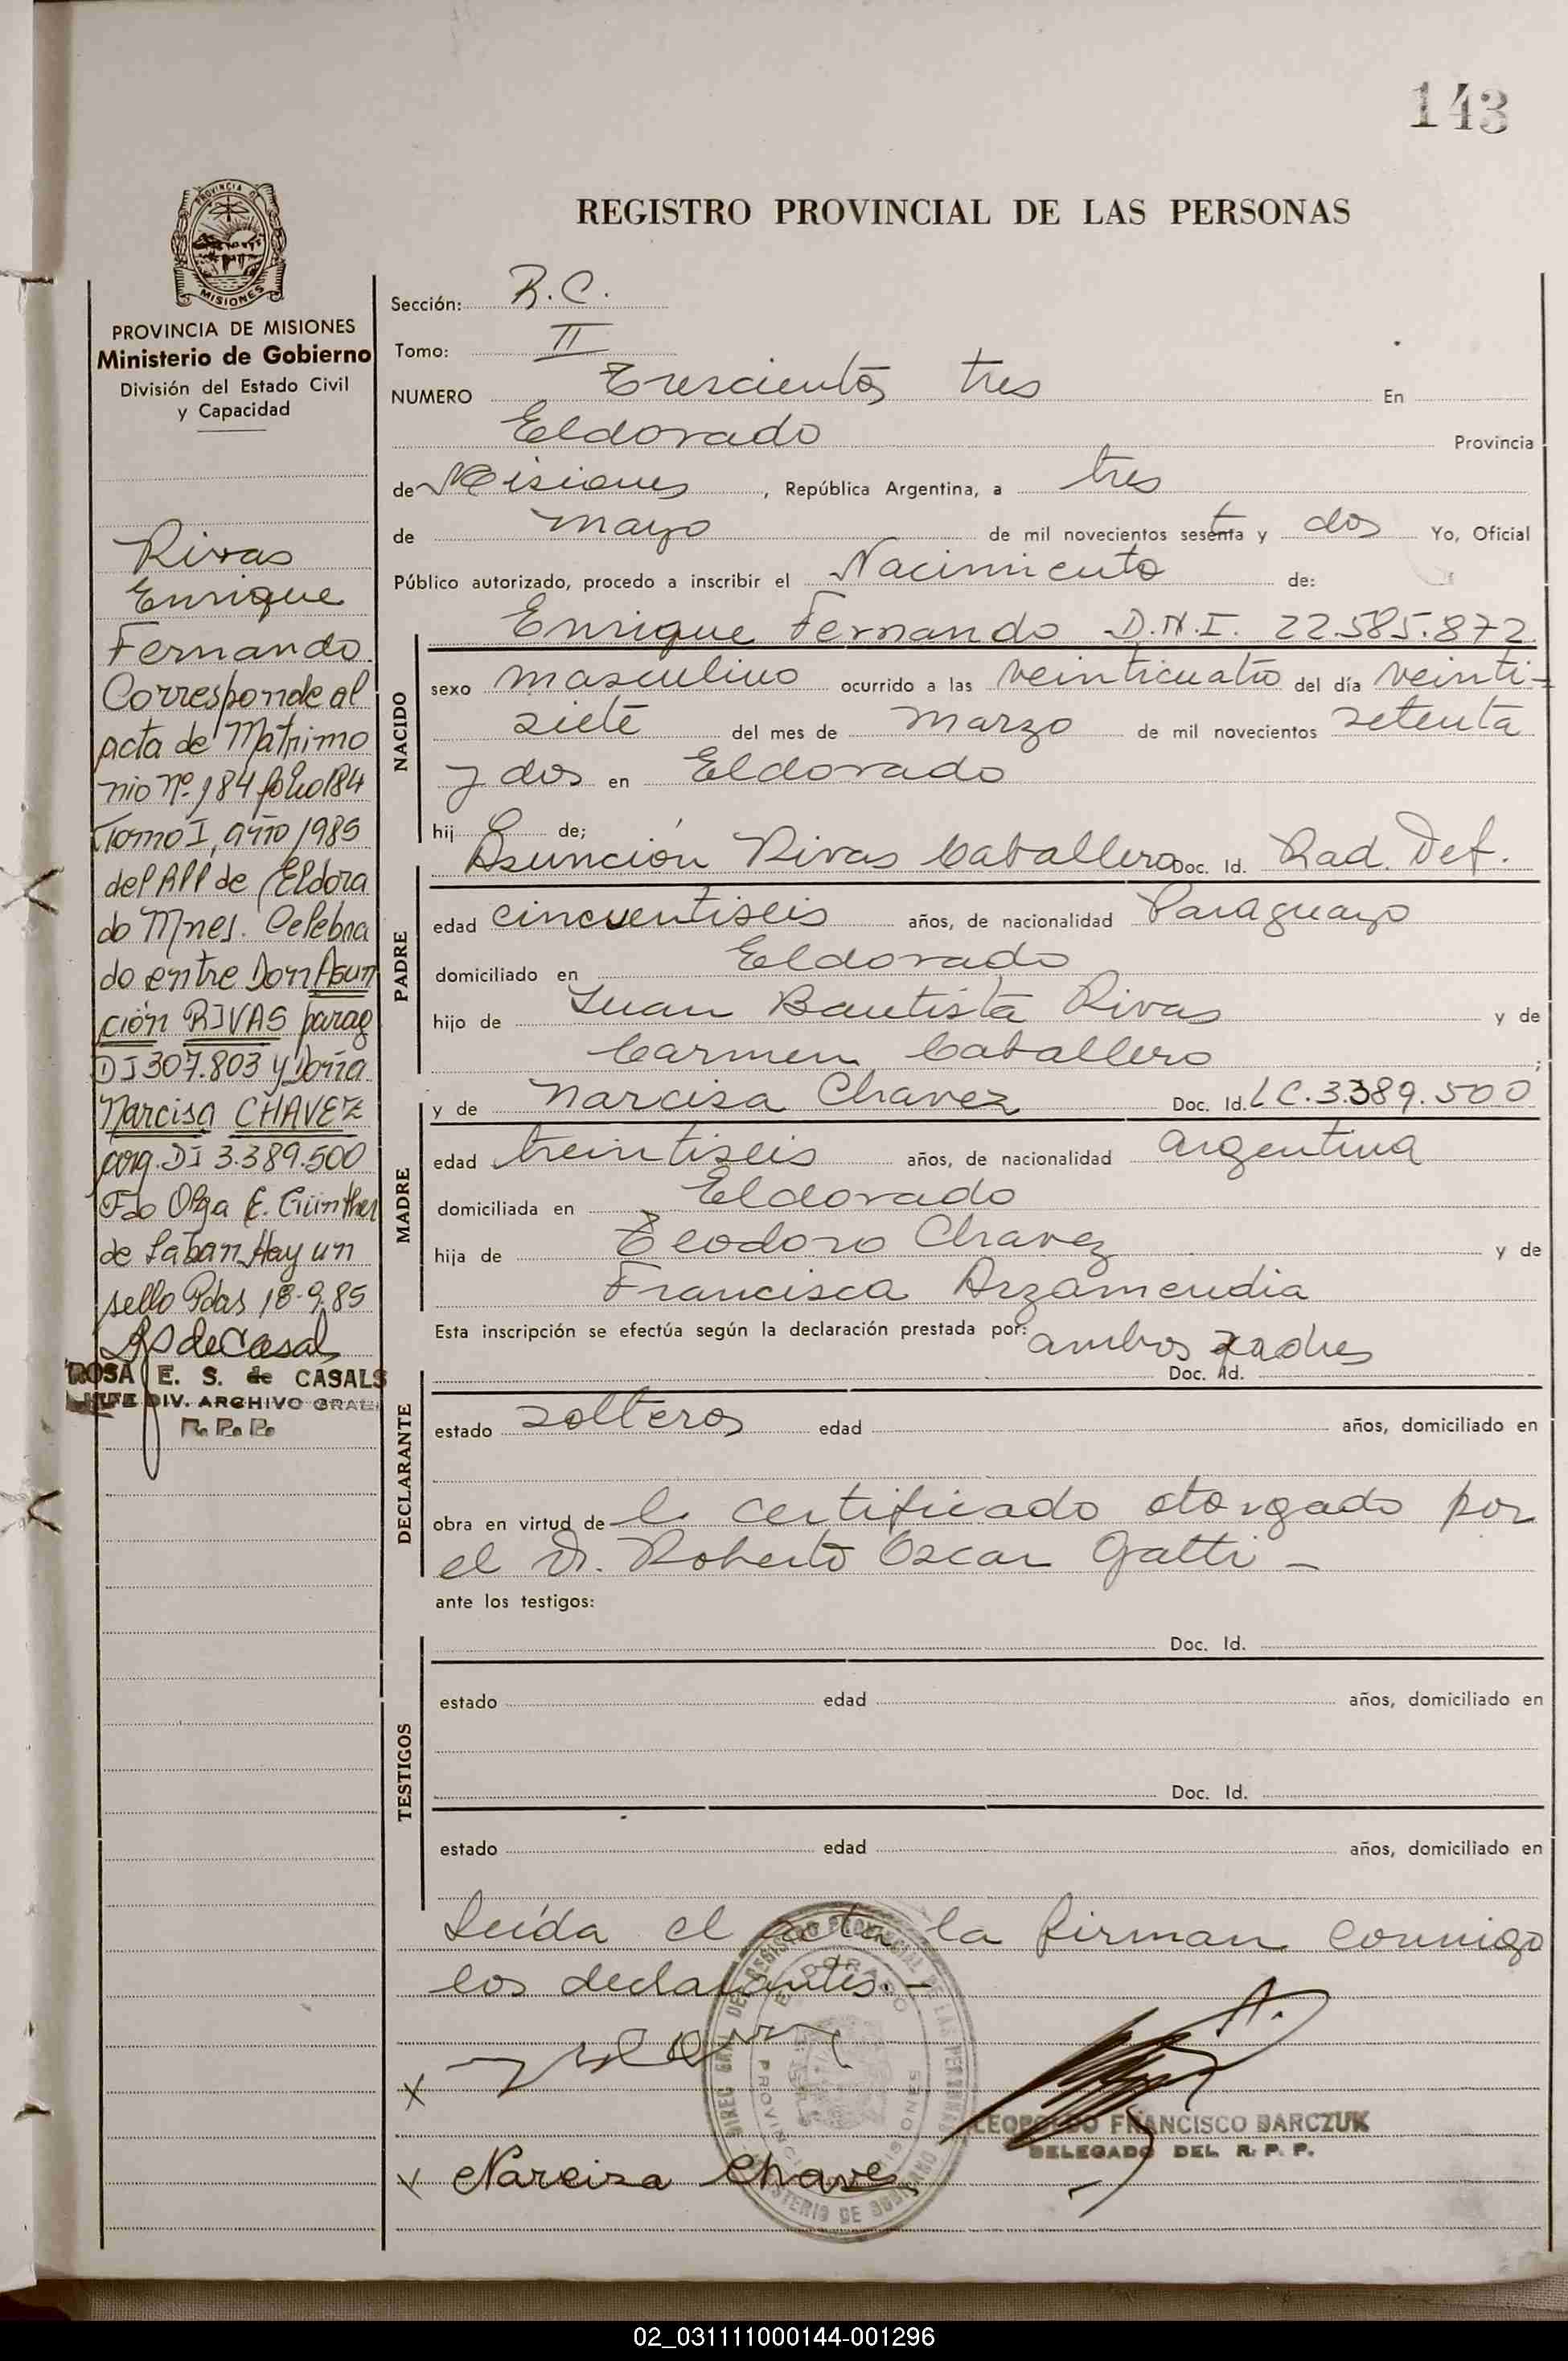 143
PROVINCIA DE
MISIONES
PROVINCIA DE MISIONES
Ministerio de Gobierno
División del Estado Civil
y Capacidad
REGISTRO PROVINCIAL DE LAS PERSONAS
Sección: R.C.
Tomo: II
NUMERO Trescientos tres En
Eldorado Provincia
de Misiones, República Argentina, a tres
de mayo de mil novecientos sesenta y dos Yo, Oficial
Público autorizado, procedo a inscribir el Nacimiento de:
Enrique Fernando D.N.I. 22.585.872
NACIDO
sexo masculino ocurrido a las veinticuatro del día veinti-
siete del mes de marzo de mil novecientos setenta
y dos en Eldorado
hijo de;
Asunción Rivas Caballero Doc. Id. Rad. Def.
PADRE
edad cincuentiseis años, de nacionalidad Paraguayo
domiciliado en Eldorado
hijo de Juan Bautista Rivas y de
Carmen Caballero ;
y de Narcisa Chavez Doc. Id. LC. 3.389.500
MADRE
edad treintiseis años, de nacionalidad argentina
domiciliada en Eldorado
hija de Teodoro Chavez y de
Francisca Arzamendia
Esta inscripción se efectúa según la declaración prestada por: ambos padres
Doc. Id.
DECLARANTE
estado solteros edad años, domiciliado en
obra en virtud de certificado otorgado por
el Dr. Roberto Oscar Gatti -
ante los testigos:
Doc. Id.
TESTIGOS
estado edad años, domiciliado en
Doc. Id.
estado edad años, domiciliado en
Leída el acta la firman conmigo
los declarantes.-
x
x Narcisa Chavez
LEOPOLDO FRANCISCO BARCZUK
DELEGADO DEL R. P. P.
Rivas
Enrique
Fernando
Corresponde al
acta de Matrimo
nio nº 184 folio 184
Tomo I, año 1985
del RPP de Eldora
do Mnes. Celebra
do entre Don Asun
ción RIVAS parag
DI 307.803 y Doña
Narcisa CHAVEZ
arg. DI 3.389.500
Fdo Olga E. Günther
de Laban Hay un
sello Pdas 18-9.85
RS de Casals
ROSA E. S. de CASALS
JEFE DIV. ARCHIVO GRAL.
R. P. P.
02_031111000144-001296